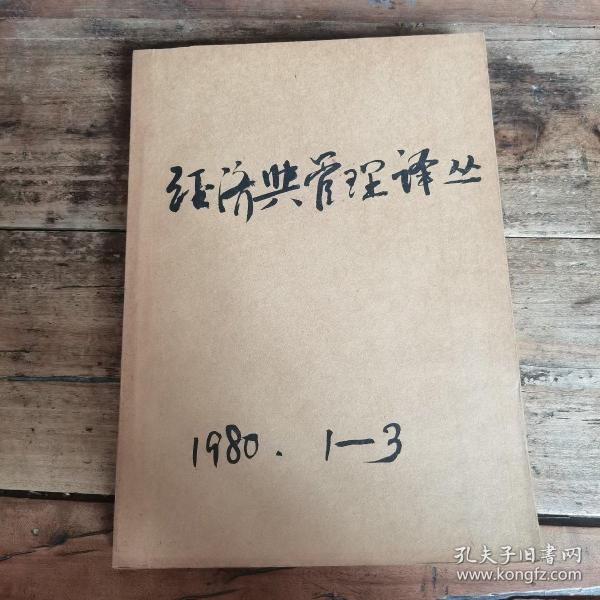 经济與管理译丛
1980. 1—3
孔夫子旧書网
www.kongfz.com